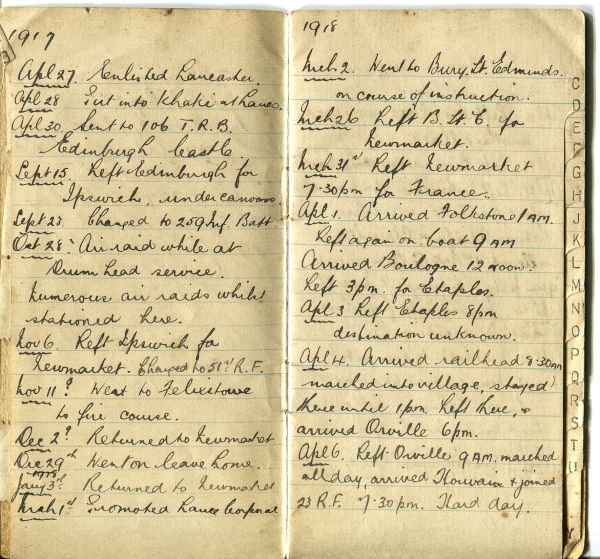 1917
Apl 27. Enlisted Lancaster.
Apl 28 Put into Khaki at Lancs.
Apl 30 Sent to 106 T.R.B.
Edinburgh Castle
Sept 15. Left Edinburgh for
Ipswich, under canvas.
Sept 23. Changed to 259 Inf. Batt.
Oct 28: Air raid while at
Drum head service.
Numerous air raids while
stationed here.
Nov 6. Left Ipswich for
Newmarket. Changed to 51st R.F.
Nov 11th Went to Felixstowe
to fire course.
Dec 2nd Returned to Newmarket
Dec 29th Went on leave home.
1918
Jany 3rd Returned to Newmarket
Mch 1st Promoted Lance Corporal
1918
Mch 2. Went to Bury. St. Edmunds.
on course of instruction.
Mch 26 Left B. St. E. for
Newmarket.
Mch 31st Left Newmarket
7.30pm for France.
Apl 1. Arrived Folkstone 1 AM.
Left again on boat 9 AM
Arrived Boulogne 12 noon.
Left 3pm. for Etaples.
Apl 3 Left Etaples 8pm
destination unknown.
Apl 4. Arrived railhead 8.30am
marched into village, stayed
there until 1pm. Left there, &
arrived Orville 6pm.
Apl 6. Left Orville 9 AM. marched
all day, arrived & joined
23 R.F. 7.30pm. Hard day.
C
D
E
F
G
H
J
K
L
M
N
O
P
Q
R
S
T
U
Y